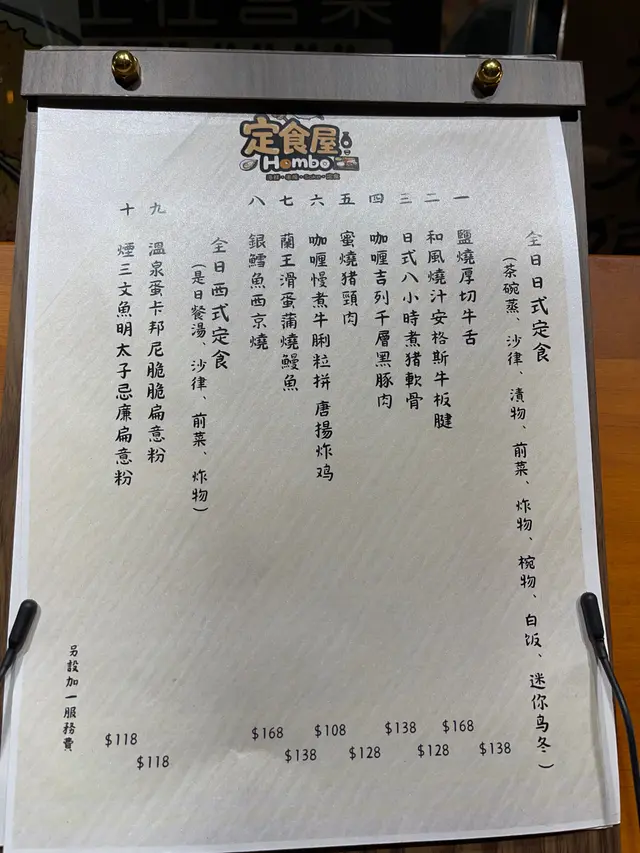 定食屋
Hombo
全日日式定食
(茶碗蒸、沙律、漬物、前菜、炸物、椀物、白饭、迷你乌冬)
一 鹽燒厚切牛舌 $138
二 和風燒汁安格斯牛板腱 $168
三 日式八小時煮猪軟骨 $128
四 咖喱吉列千層黑豚肉 $138
五 蜜燒猪頸肉 $128
六 咖喱慢煮牛脷粒拼 唐揚炸鸡 $108
七 蘭王滑蛋蒲燒鰻魚 $138
八 銀鱈魚西京燒 $168
全日西式定食
(是日餐湯、沙律、前菜、炸物)
九 溫泉蛋卡邦尼脆脆扁意粉 $118
十 煙三文魚明太子忌廉扁意粉 $118
另設加一服務費